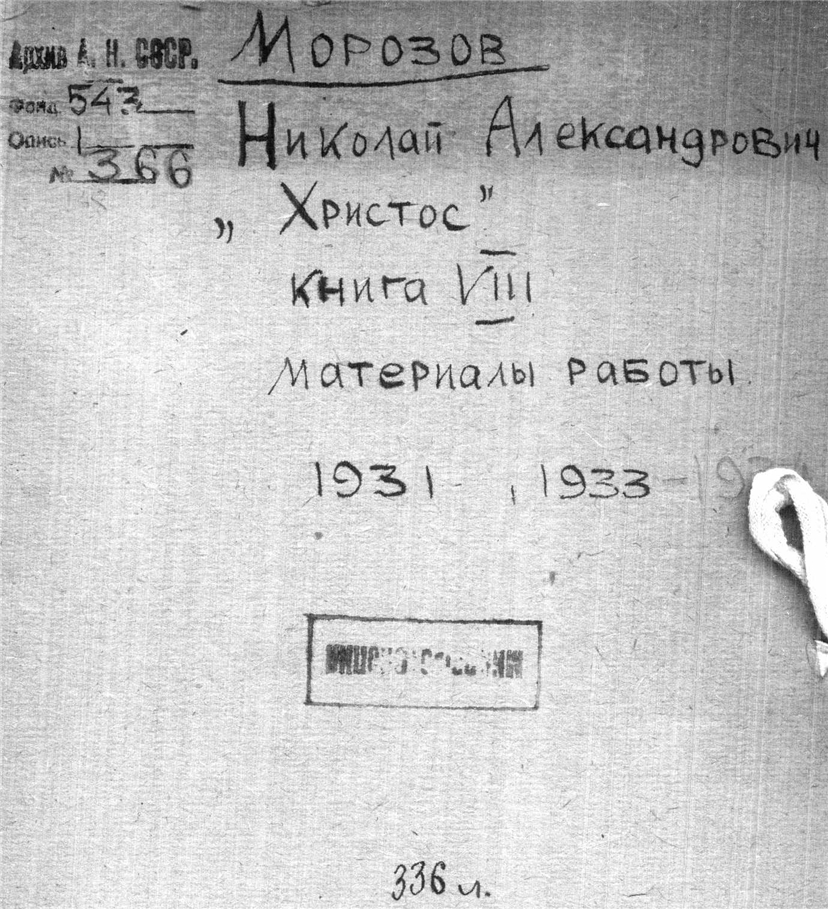 Архив А. Н. СССР.
Фонд 543
Опись 1
№ 366
Морозов
Николай Александрович
„Христос”
книга VIII
материалы работы.
1931 , 1933 -
336 л.